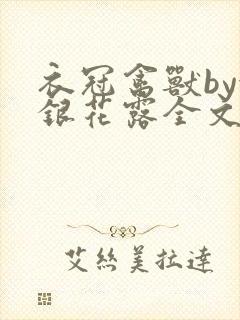 衣冠禽獸by
銀花露全文
艾絲美拉達